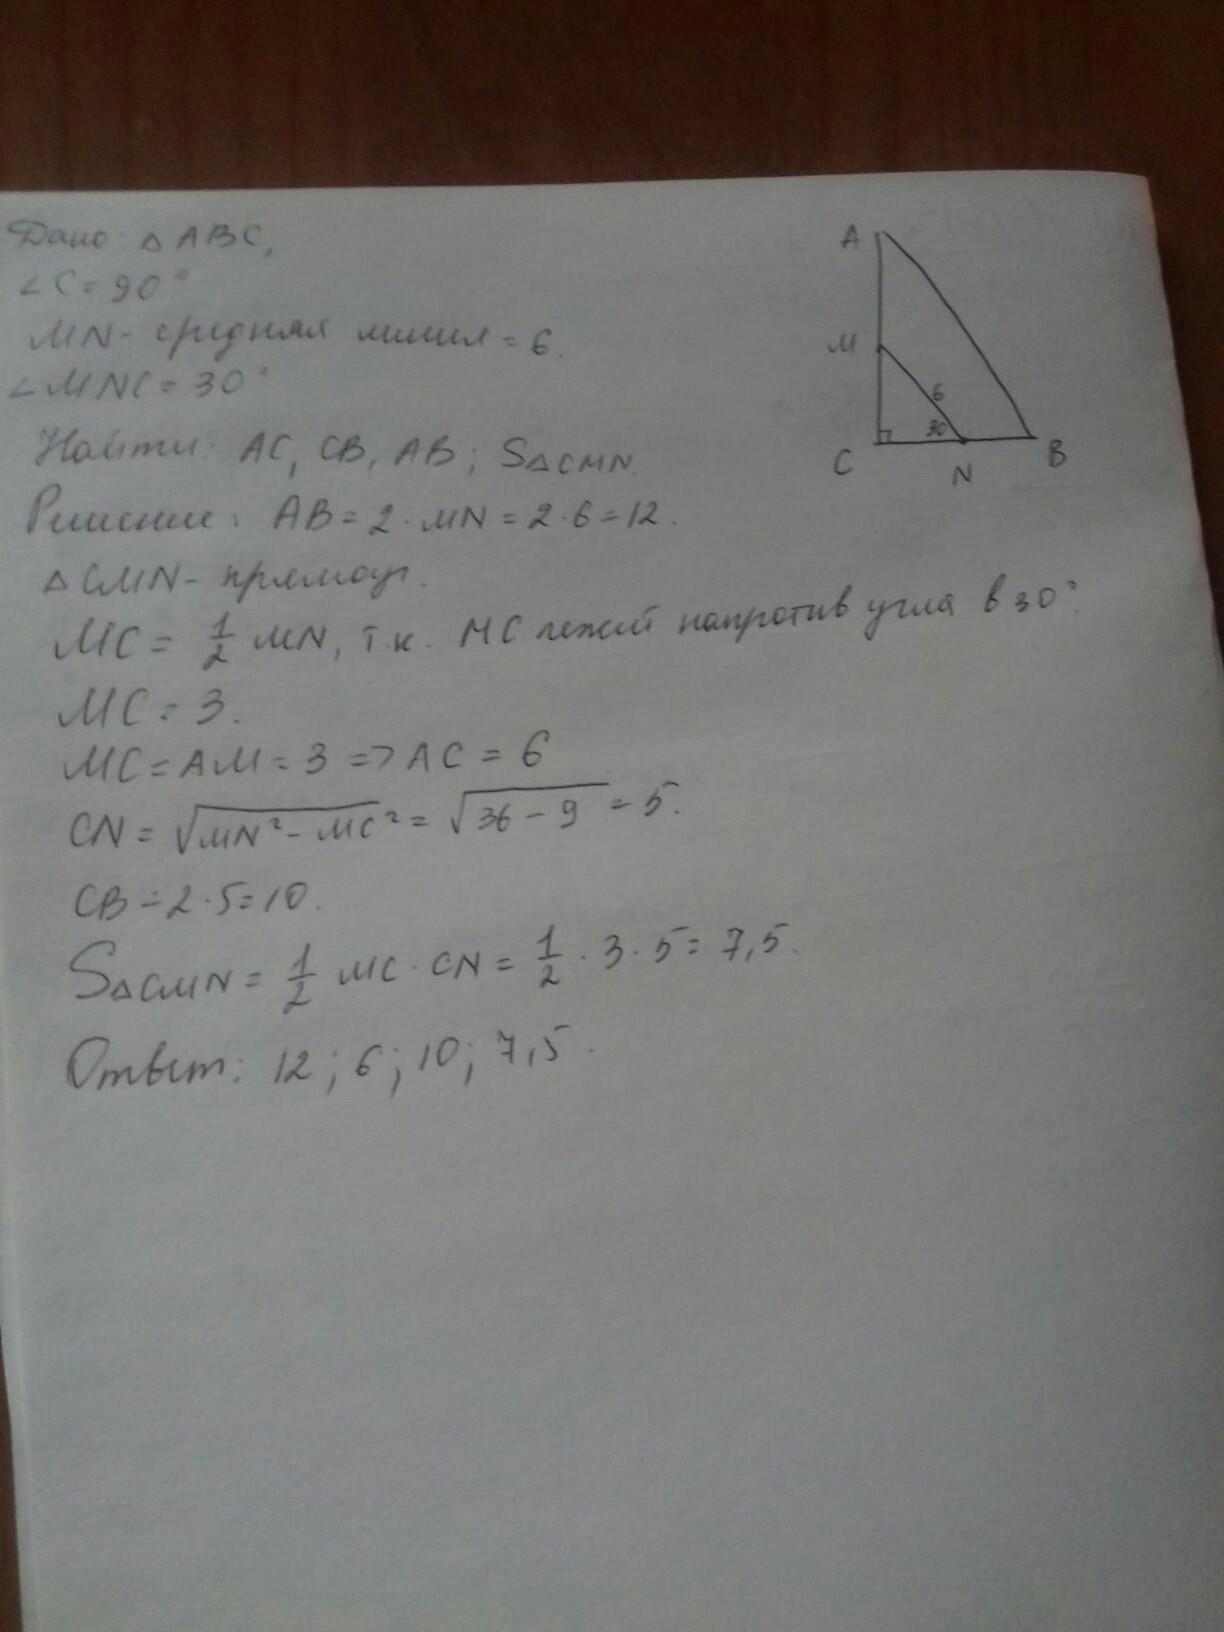 Дано: △ABC,
∠C=90°
MN- средняя линия = 6.
∠MNC=30°
Найти: AC, CB, AB; S△CMN.
Решение: AB=2·MN=2·6=12.
△CMN- прямоуг.
MC= 1/2 MN, т.к. MC лежит напротив угла в 30°.
MC=3.
MC=AM=3 => AC=6
CN=√MN²-MC²=√36-9=5.
CB=2·5=10.
S△CMN=1/2 MC·CN=1/2·3·5=7,5.
Ответ: 12; 6; 10; 7,5.
A
M
6
30
C
N
B